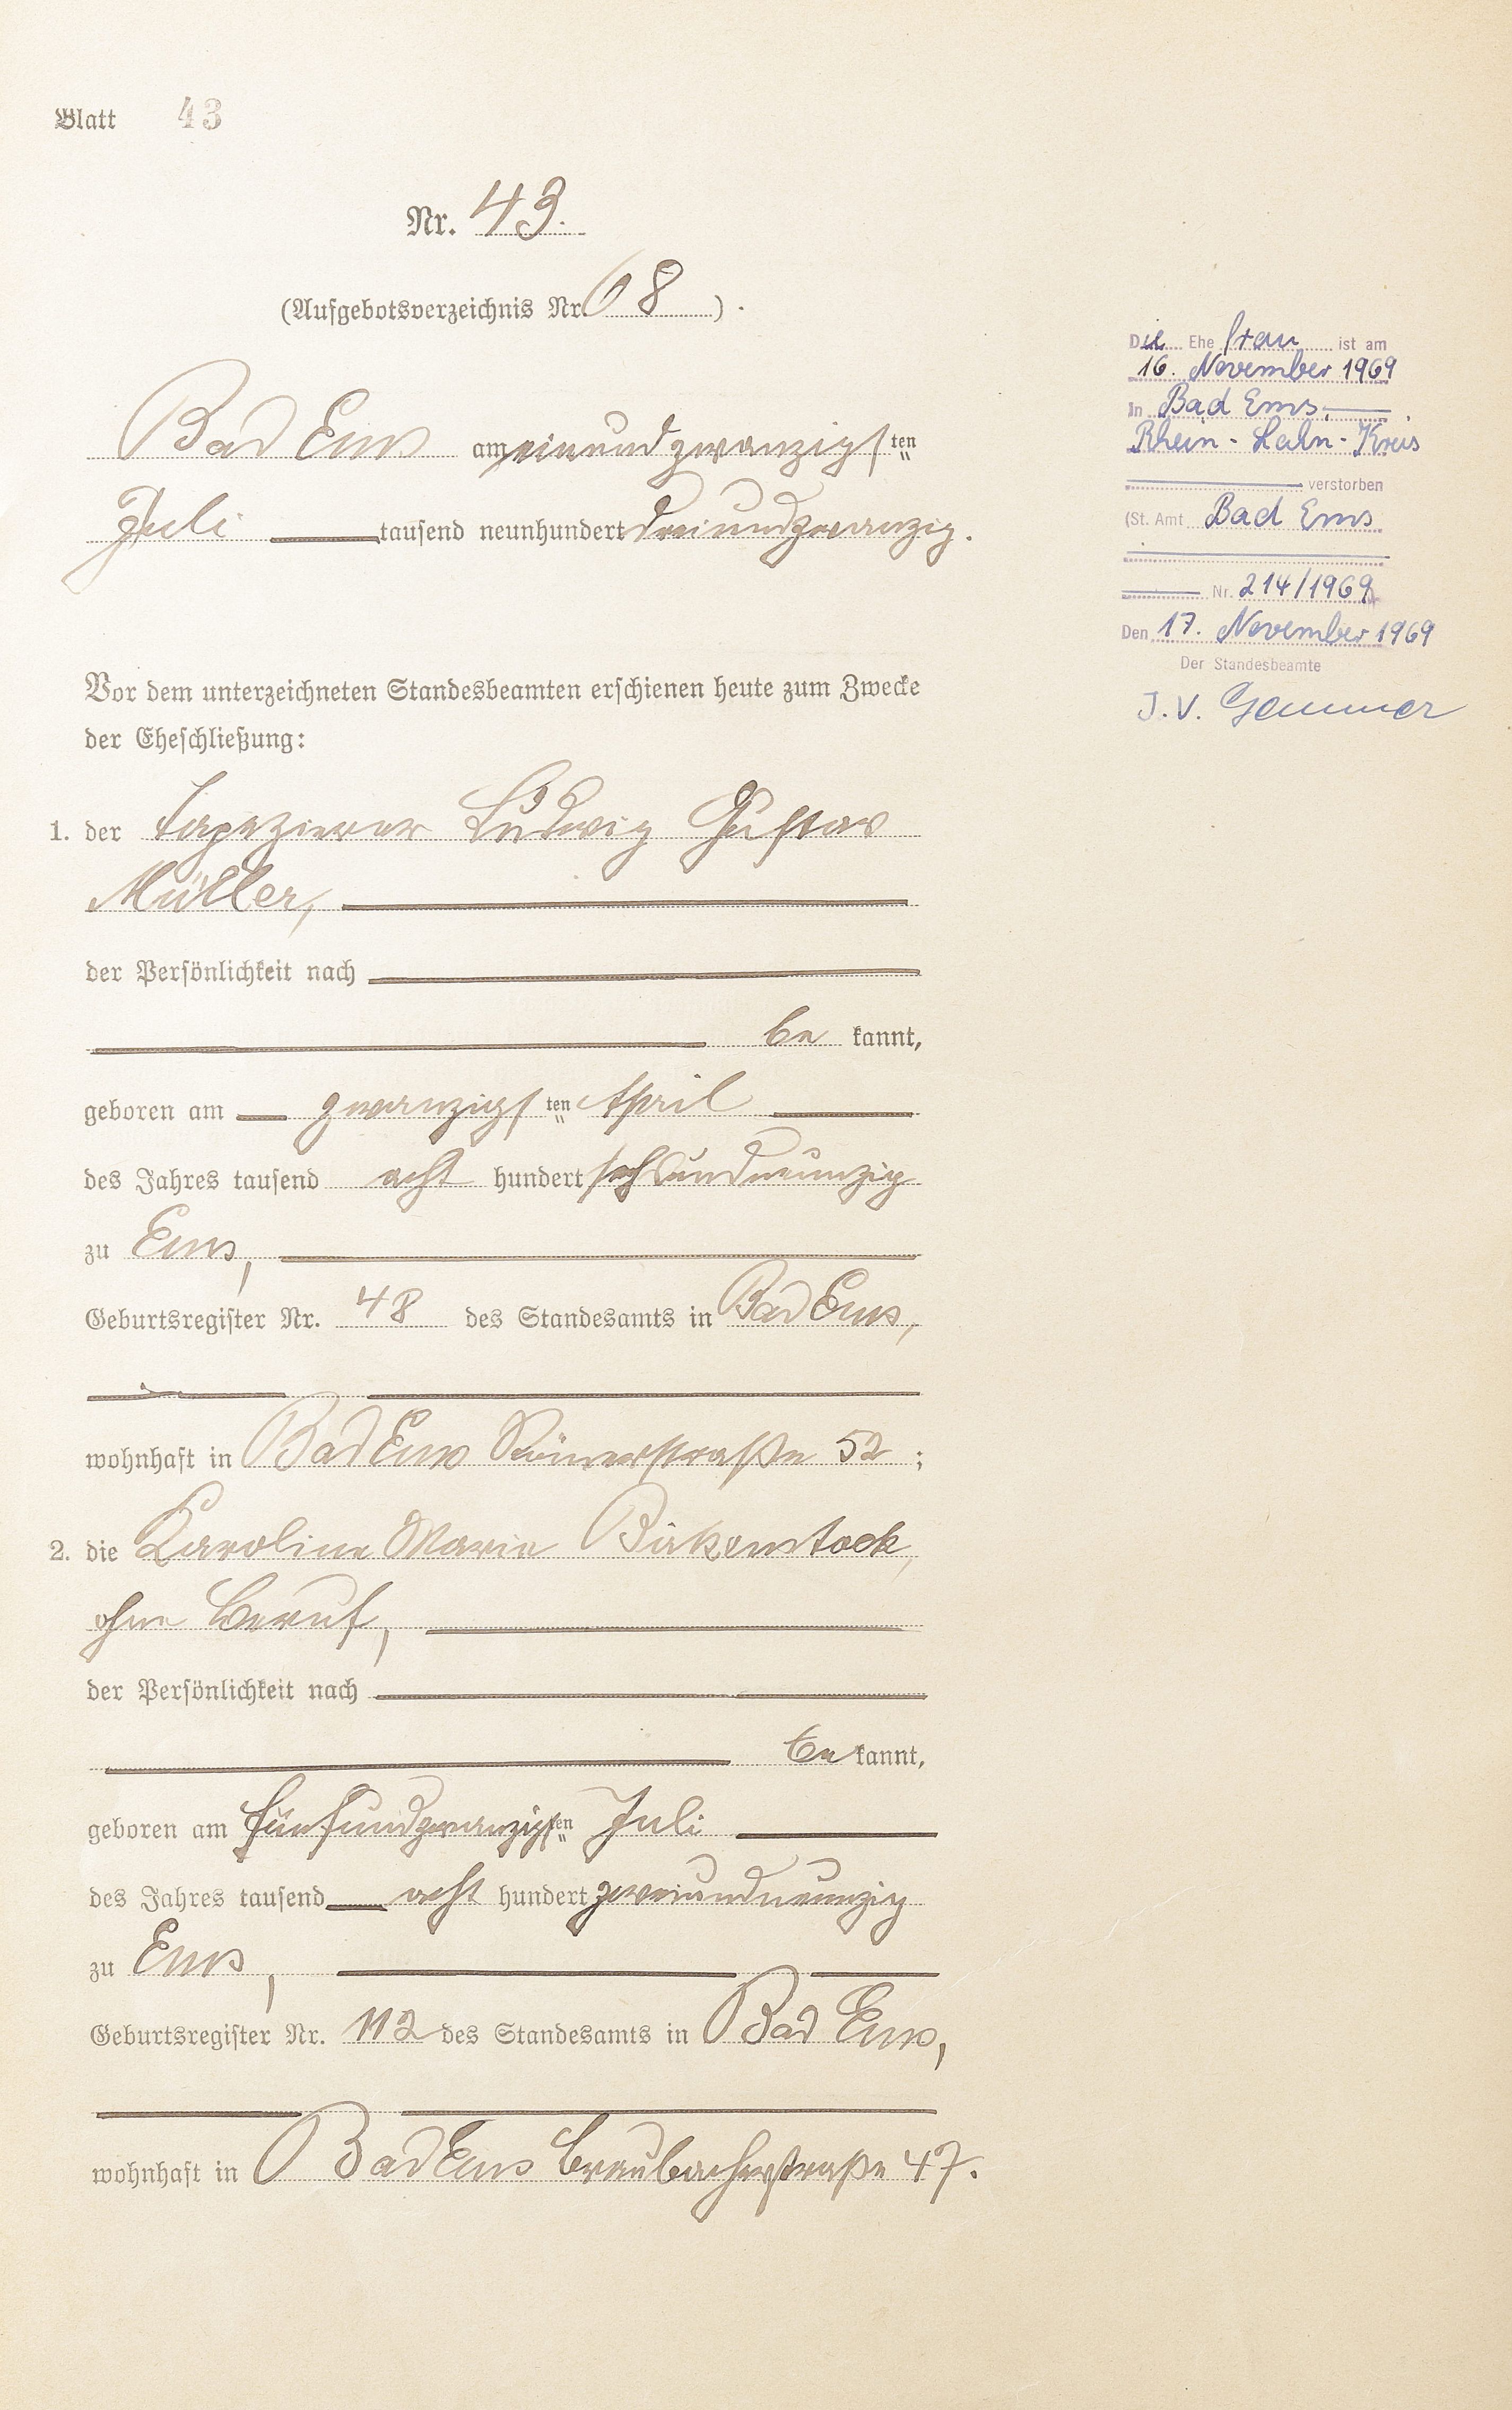 Blatt 43
Nr. 43.
(Aufgebotsverzeichnis Nr. 68).
Bad Ems am einundzwanzigsten
Juli tausend neunhundert dreiundzwanzig.
Vor dem unterzeichneten Standesbeamten erschienen heute zum Zwecke
der Eheschließung:
1. der Tapezierer Ludwig Gustav
Müller,
der Persönlichkeit nach
be kannt,
geboren am zwanzigsten April
des Jahres tausend acht hundert sechsundneunzig
zu Ems,
Geburtsregister Nr. 48 des Standesamts in Bad Ems,
wohnhaft in Bad Ems Römerstraße 52;
2. die Karoline Marie Birkenstock,
ohne Beruf,
der Persönlichkeit nach
be kannt,
geboren am fünfundzwanzigsten Juli
des Jahres tausend acht hundert zweiundneunzig
zu Ems,
Geburtsregister Nr. 112 des Standesamts in Bad Ems,
wohnhaft in Bad Ems Braubacherstraße 47.
Die Ehefrau ist am
16. November 1969
in Bad Ems,
Rhein-Lahn-Kreis
verstorben
(St. Amt Bad Ems
Nr. 214/1969
Den 17. November 1969
Der Standesbeamte
J.V.